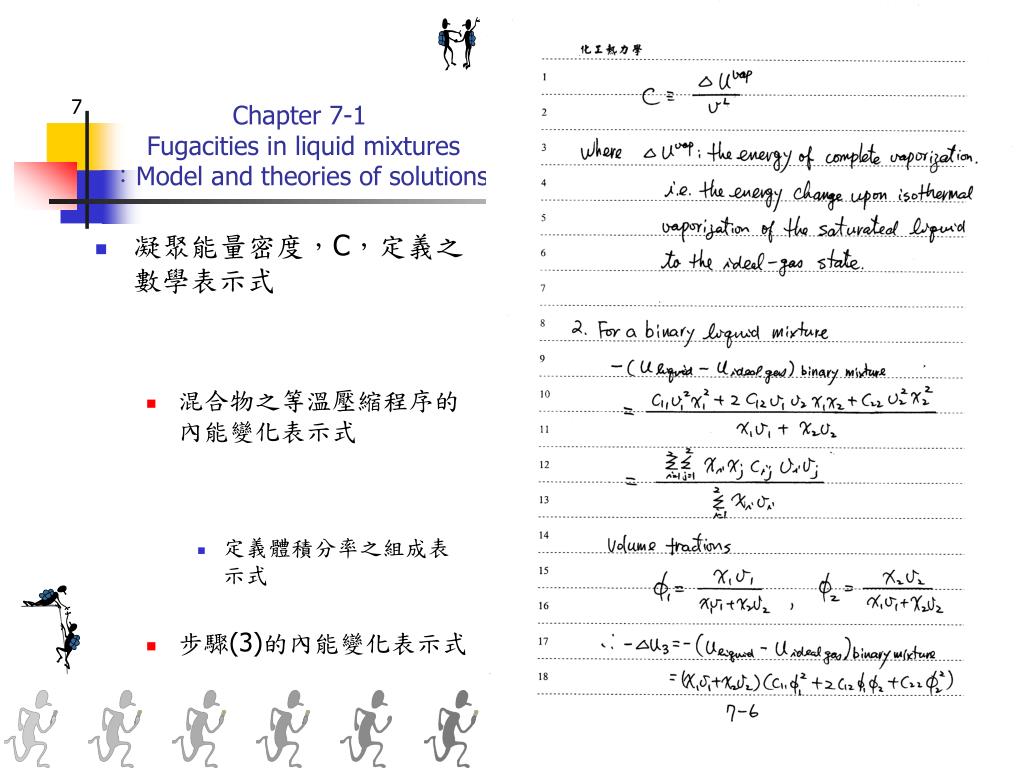 7
Chapter 7-1
Fugacities in liquid mixtures
: Model and theories of solutions
凝聚能量密度,C,定義之
數學表示式
混合物之等溫壓縮程序的
內能變化表示式
定義體積分率之組成表
示式
步驟(3)的內能變化表示式
化工熱力學
1
C ≡ ΔU^vap / v^L
2
3 where ΔU^vap: the energy of complete vaporization.
4 i.e. the energy change upon isothermal
5 vaporization of the saturated liquid
6 to the ideal-gas state.
7
8 2. For a binary liquid mixture
9 -(U liquid - U ideal gas) binary mixture
10 = (C₁₁v₁²x₁² + 2C₁₂v₁v₂x₁x₂ + C₂₂v₂²x₂²) /
11 (x₁v₁ + x₂v₂)
12 = Σ(i=1→2) Σ(j=1→2) xᵢxⱼCᵢⱼvᵢvⱼ /
13 Σ(i=1→2) xᵢvᵢ
14 volume fractions
15 φ₁ = x₁v₁ / (x₁v₁+x₂v₂) , φ₂ = x₂v₂ / (x₁v₁+x₂v₂)
16
17 ∴ -ΔU₃ = -(U liquid - U ideal gas) binary mixture
18 = (x₁v₁+x₂v₂)(C₁₁φ₁² + 2C₁₂φ₁φ₂ + C₂₂φ₂²)
7-6